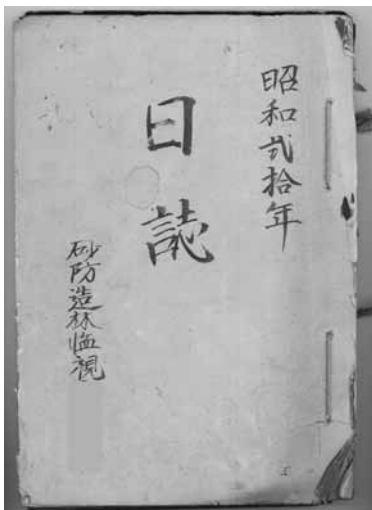 昭和弐拾年
日誌
砂防造林監視